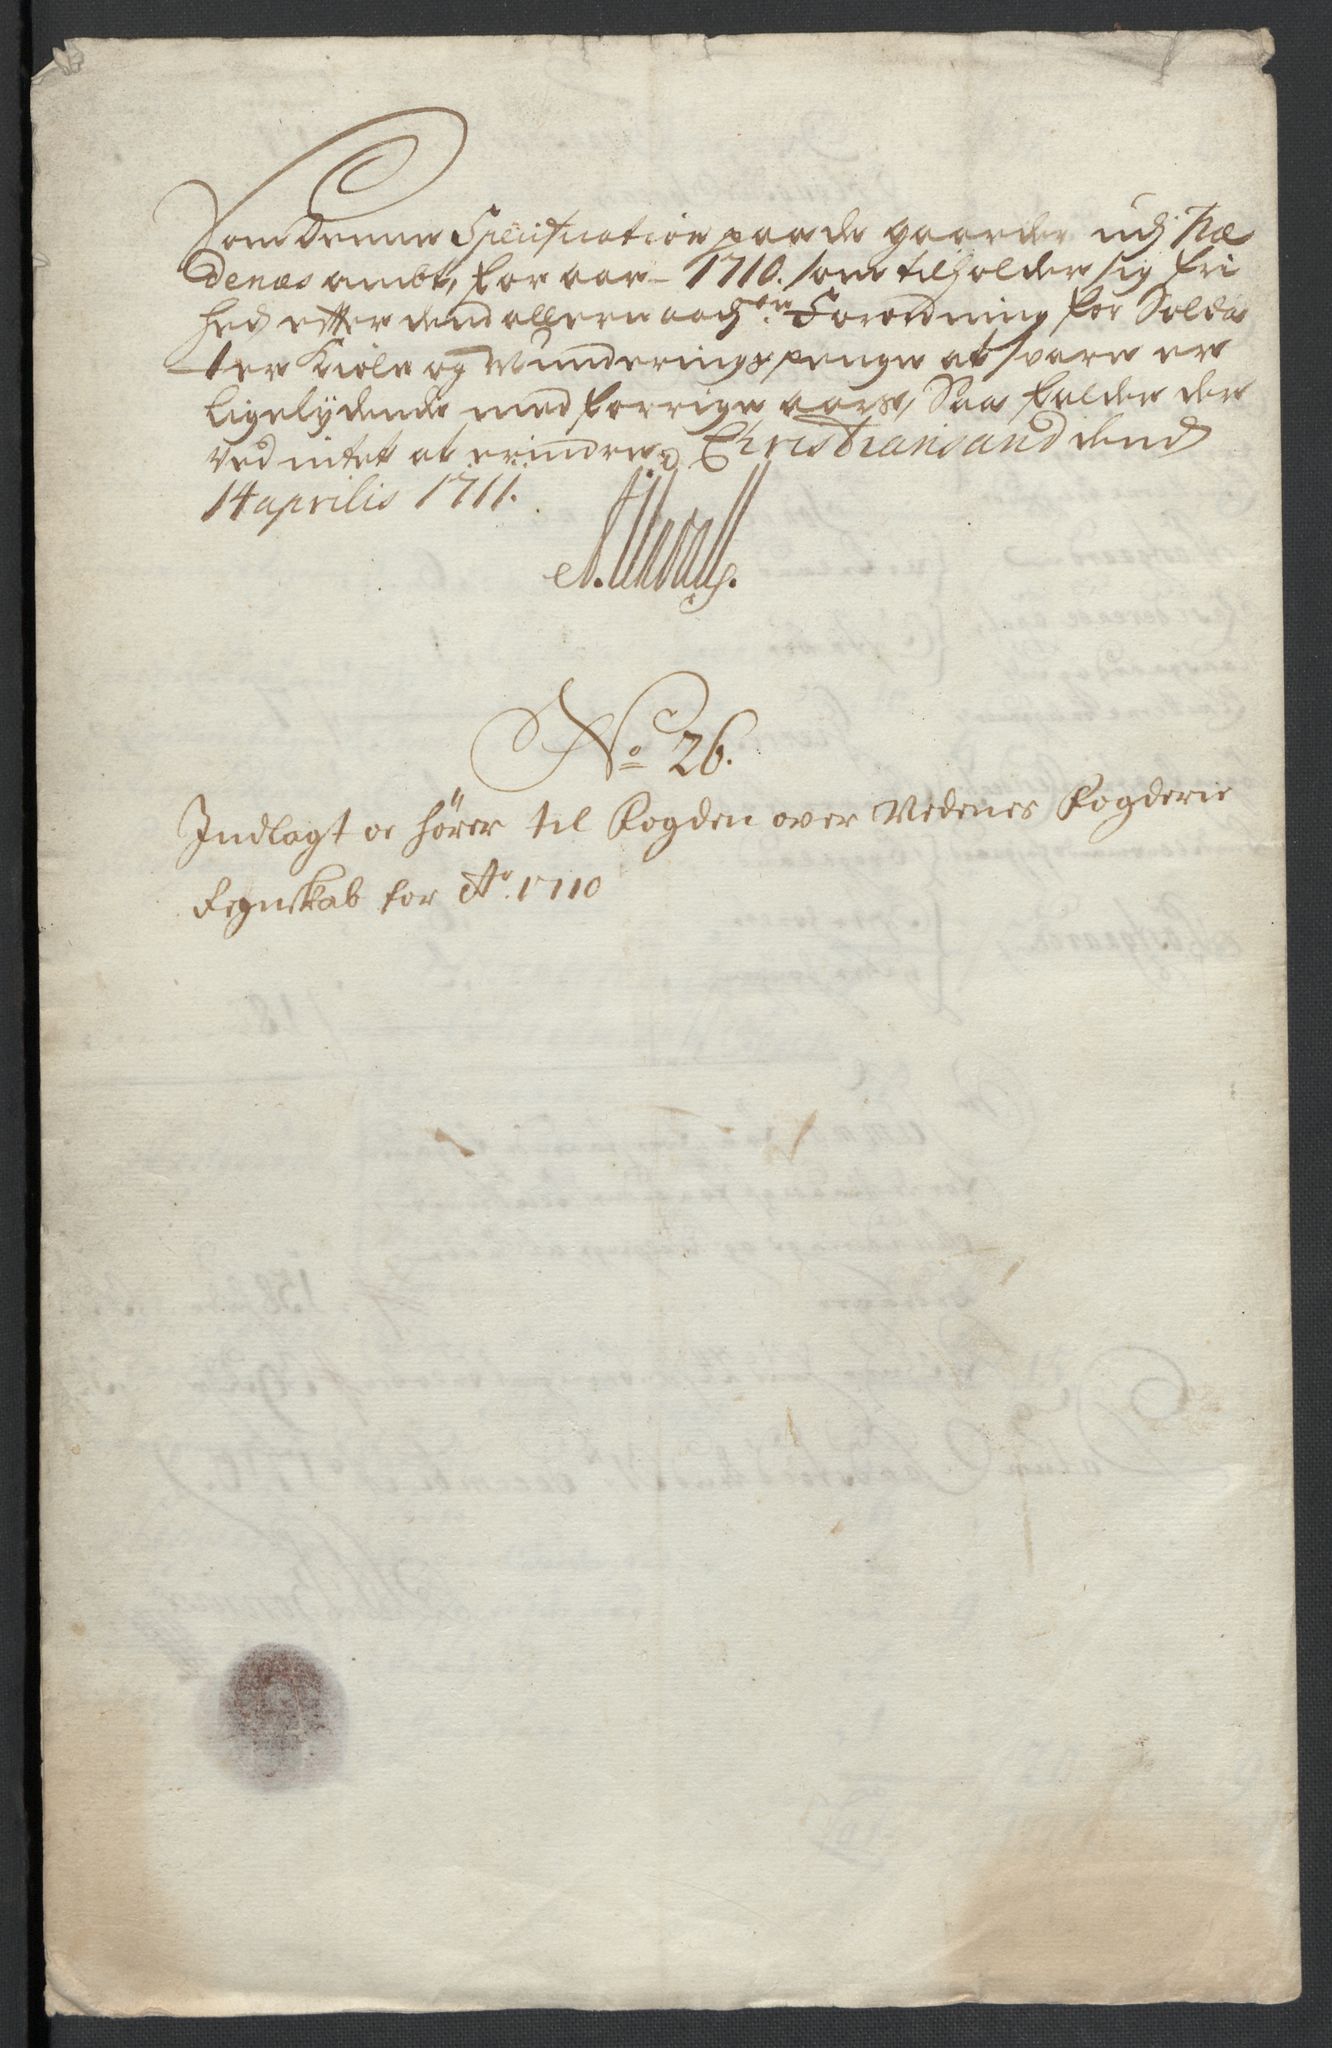 Som denne Specification paa de gaarder udj Næ
denæs ambt, for aar 1710. som tilholder sig fri
hed efter dend allernaadste Forordning for Solda
ter Kiole og Munderings penge at svare er
ligelydende med forrige aars, Saa falder der
ved intet at erindre, Christiansand dend
14 aprilis 1711.
No 26.
Indlagt oc hörer til Fogden over Nedenes Fogderie
Regnskab for Ao. 1710